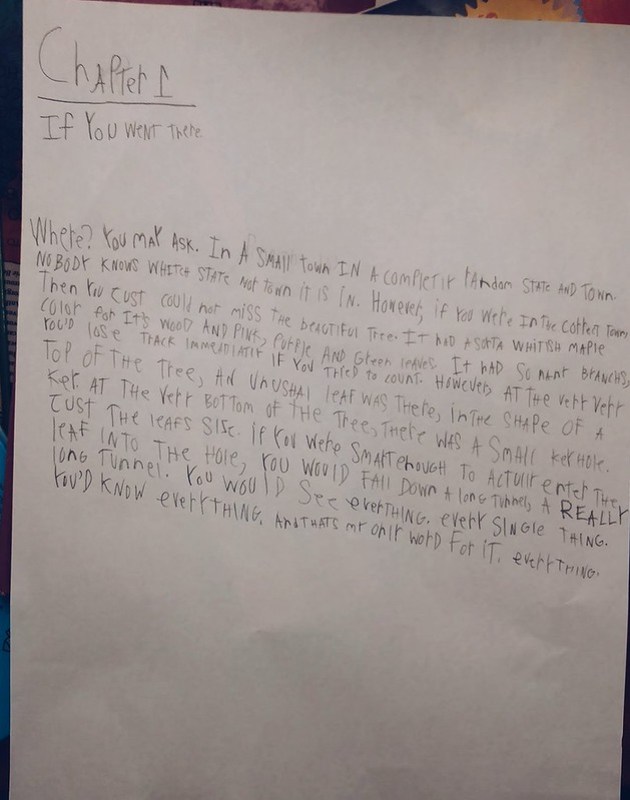 Chapter 1
If You Went There
Where? You may ask. In A small town IN A completly random State and Town.
Nobody knows whitch state not town it is in. However, if you were in the correct town,
Then you Just could not miss the beautiful tree. It had a sorta whitish maple
color for it's wood and pink, purple, and green leaves. It had so many branchs,
You'd lose track immediatly if you tried to count. However, at the very very
Top of the tree, an unushal leaf was there, in the shape of a
Key. At the very bottom of the tree, there was a small keyhole.
Just the leafs sise. If you were smart enough to actuly enter the
leaf into the hole, you would fall down a long tunnel, a REALLY
long tunnel. You would see everything. every single thing.
You'd know everything. And thats my only word for it. everything.